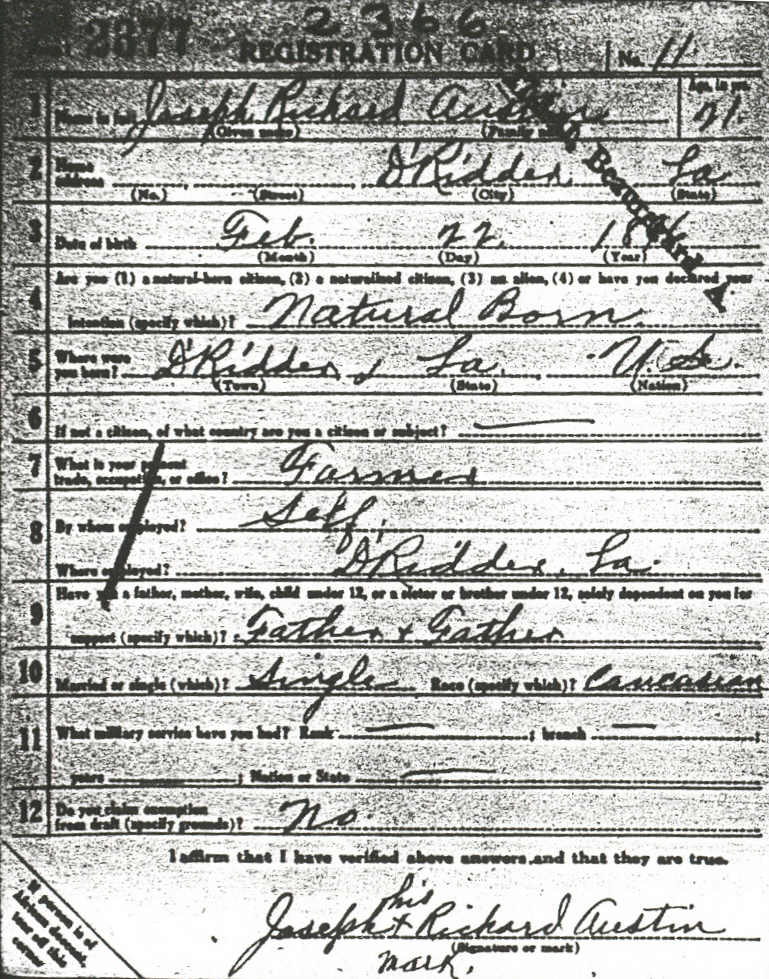 2377 2366
REGISTRATION CARD No. 11
1 Name in full Joseph Richard Austin Age, in yrs. 21
(Given name) (Family name)
2 Home address D'Ridder La
(No.) (Street) (City) (State)
3 Date of birth Feb. 22. 18
(Month) (Day) (Year)
Are you (1) a natural-born citizen, (2) a naturalized citizen, (3) an alien, (4) or have you declared your
4 intention (specify which)? Natural Born
5 Where were you born? D'Ridder, La. U.S.
(Town) (State) (Nation)
6 If not a citizen, of what country are you a citizen or subject? —
7 What is your present trade, occupation, or office? Farmer
8 By whom employed? Self.
Where employed? D'Ridder, La.
9 Have you a father, mother, wife, child under 12, or a sister or brother under 12, solely dependent on you for
support (specify which)? Father + Father
10 Married or single (which)? Single Race (specify which)? Caucasian
11 What military service have you had? Rank — ; branch — ;
years ; Nation or State —
12 Do you claim exemption from draft (specify grounds)? No.
I affirm that I have verified above answers, and that they are true.
his
Joseph + Richard Austin
(Signature or mark)
mark.
If person is of
African descent,
tear off this
corner
Beauregard